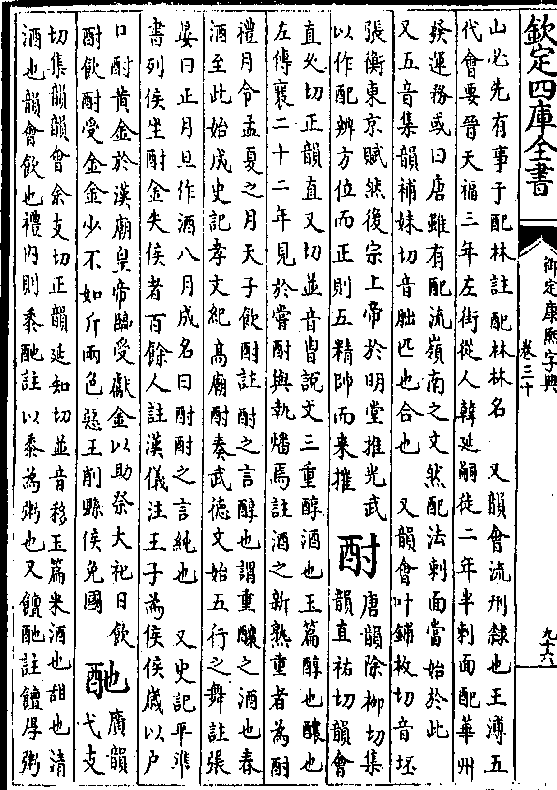 欽定四庫全書
御定康熙字典
卷三十
九十六
山必先有事于配林註配林林名　又韻會流刑隸也王溥五
代會要晉天福三年左街從人韓延嗣徒二年半刺面配華州
發運務或曰唐雖有配流嶺南之文然配法刺面當始於此
又五音集韻補妹切音朏匹也合也　又韻會叶鋪枚切音坯
張衡東京賦然後宗上帝於明堂推光武
以作配辨方位而正則五精帥而來摧
酎
唐韻除柳切集
韻直祐切韻會
直炙切正韻直又切並音胄說文三重醇酒也玉篇醇也釀也
左傳襄二十二年見於嘗酎與執燔焉註酒之新熟重者為酎
禮月令孟夏之月天子飲酎註酎之言醇也謂重釀之酒也春
酒至此始成史記孝文紀高廟酎奏武德文始五行之舞註張
晏曰正月旦作酒八月成名曰酎酎之言純也　又史記平準
書列侯坐酎金失侯者百餘人註漢儀注王子為侯侯歲以戶
口酎黃金於漢廟皇帝臨受獻金以助祭大祀日飲
酎飲酎受金金少不如斤兩色惡王削縣侯免國
酏
廣韻
弋支
切集韻韻會余支切正韻延知切並音移玉篇米酒也甜也清
酒也韻會飲也禮內則黍酏註以黍為粥也又饘酏註饘厚粥